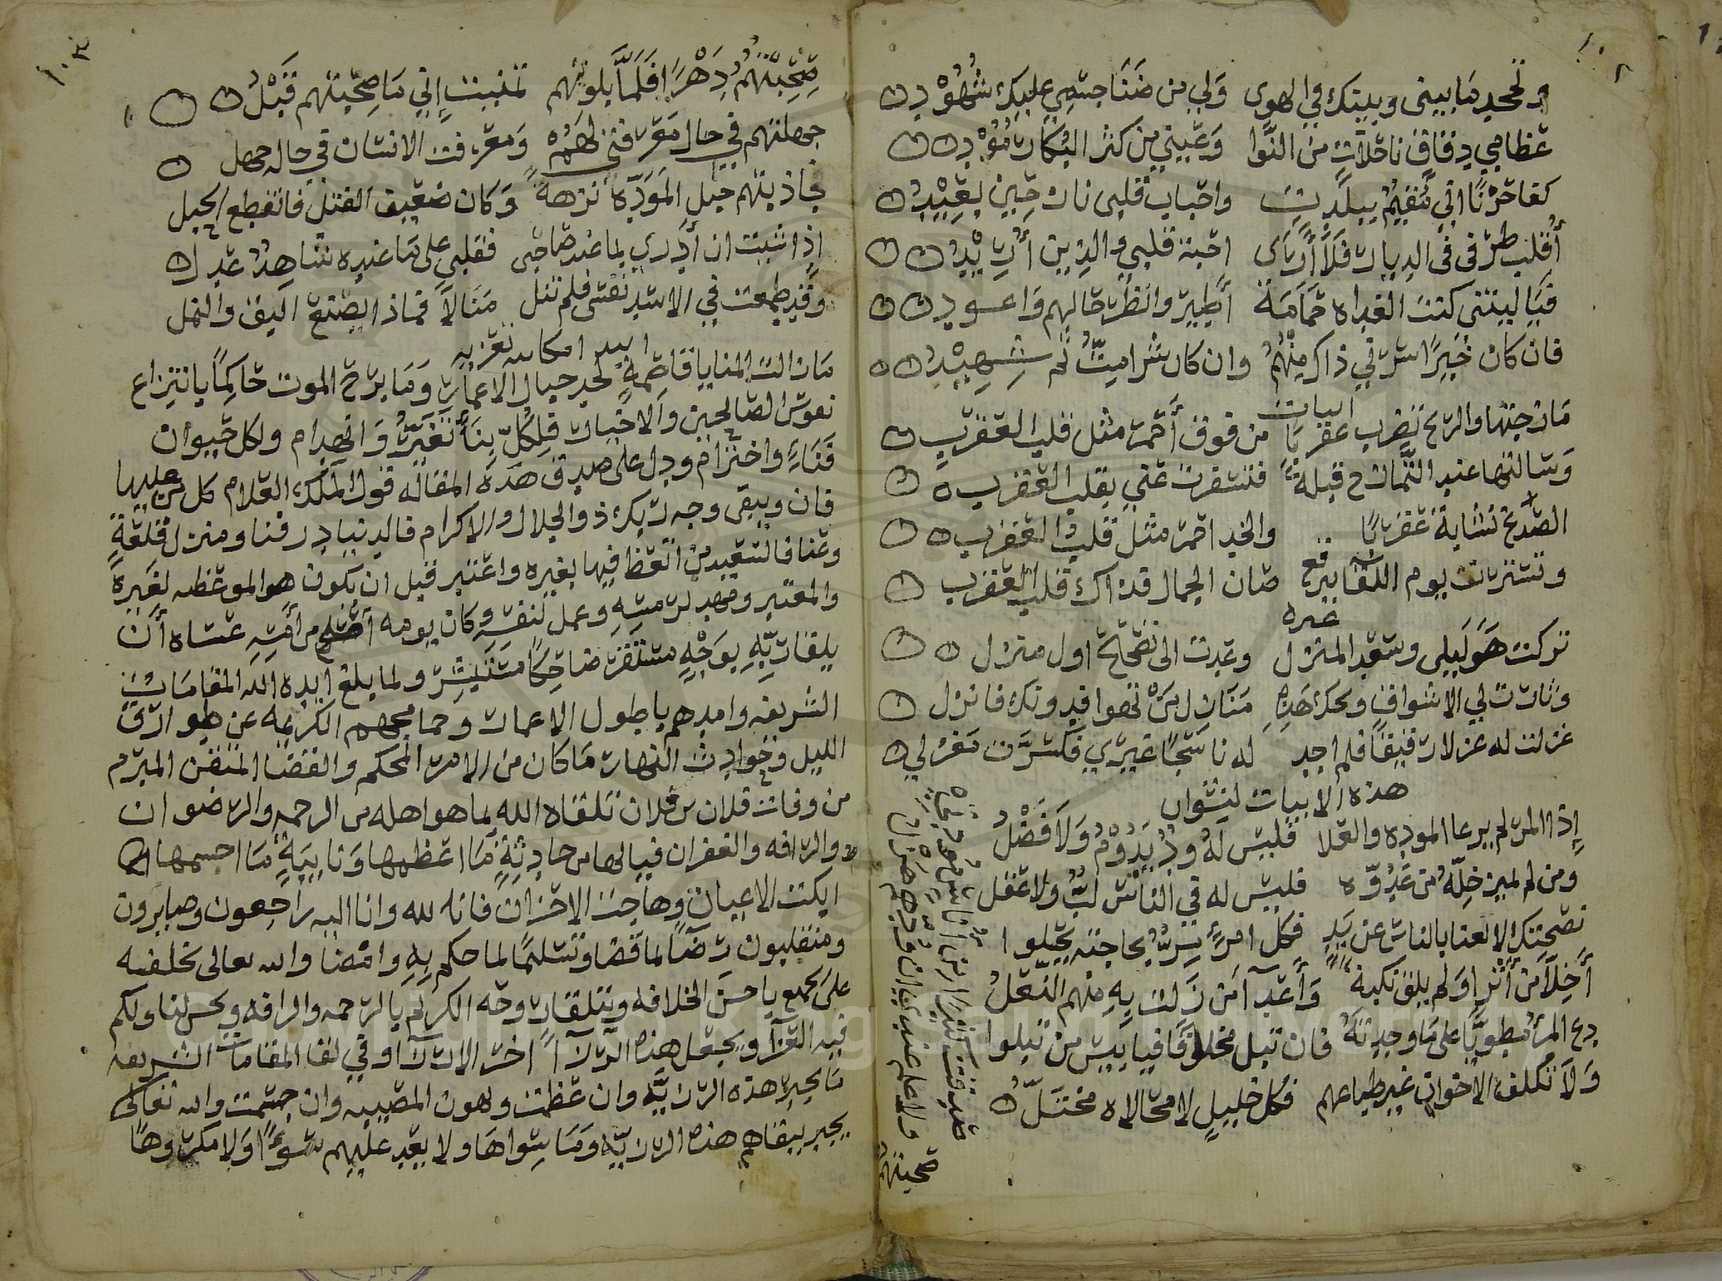 وتجحد ما بيني وبينك في الهوى ولي من ضنا جسمي عليك شهود
عظامي دقاق ناحلات من النوا وعيني من كثر البكا
كفا حزنا اني مقيم ببلدة واحباب قلبي نازحين بعيد
أقلب طرفي في الديار فلا أرى احبة قلبي والذين أريد
فيا ليتني كنت الغداه حمامة أطير وانظر حالهم واعود
فان كان خيرا سرني ذاك منهم وان كان شرا ميت ثم شهيد
ابيات
مازحتها والريح تضرب عقربا من فوق أحمر مثل قلب العقرب
وسالتها عند قبلة فتسترت عني بقلب العقرب
الصدغ شابه عقربا والخد احمر مثل قلب العقرب
وتسترت يوم اللقا ببرقع صان الجمال قد اك قلب العقرب
غيره
تركت هوى ليلى وسعد المنزل وعدت الى تصحيح اول منزل
ونادت لي الاشواق ويحك هذه منازل من تهوا فدونك فانزل
غزلت له غزلا رقيقا فلم اجد له ناسجا غيري فكسرت مغزلي
هذه الابيات لنشوان
إذا المر لم يرعا الموده والعلا فليس له ود يدوم ولا فضل
ومن لم يميز خله من عدوه فليس له في الناس لب ولا عقل
نصحتك لا تعنا بالناس عن يد فكل امرئ بحاجته يجلوا
أخلا من أثرا ولم يلق نكبة وأعدا من زلت به منهم النعل
دع المر مطويا على ما وجدته فان تبل مخلوقا فيا بيس من تبلوا
ولا تكلف الاخوان غير طباعهم فكل خليل لا محالاه مختل
صحبتهم
١٠٣
صحبتهم دهرا فلما بلوتهم تمنيت إني ما صحبتهم قبل
جهلتهم في حال معرفتي لهم ومعرفت الانسان في حاله جهل
جاذبتهم حبل المودة نزهة وكان ضعيف الفتل فانقطع الحبل
اذا شيت ان أدري بما عند صاحبي فقلبي على ما عنده شاهد عدل
وقد طمعت في الاسد نفسي فلم تنل منالا فماذا يصنع البق والنمل
ابتدا مكاتبه تعزيه
مازالت المنايا قاطعة لحد حبال الاعمار وما برح الموت حاكما بانتزاع
نفوس الصالحين والاخيار فلكل بناء تغير وانهدام ولكل حيوان
فناء واخترام ودل على صدق هذه المقاله قول الملك العلام كل من عليها
فان ويبقى وجه ربك ذو الجلال والاكرام فالدنيا دار فنا ومنزل قلعة
وعنا فالسعيد من اتعظ فيها بغيره واعتبر قبل ان يكون هو الموعظه لغيره
والمعتبر ومهد لرمسه وعمل لنفسه وكان يومه من أمسه عساه أن
يلقا ربه بوجه مستقر ضاحكا مستبشر ولما بلغ ايده الله المقامات
الشريفه وامدهم باطول الاعمار وحما مجهم الكريمه عن طوارق
الليل وحوادث النهار ما كان من الامر المحكم والقضا المتقن المبرم
من وفات فلان بن فلان تلقاه الله بما هو اهله من الرحمه والرضوان
والرافه والغفران فيا لها من حادثة ما اعظمها ونايبة ما اجسمها
ابكت الاعيان وهاجت الاحزان فانا لله وانا اليه راجعون وصابرون
ومنقلبون رضا لما قضا وتسليما لما حكم به وامضا والله تعالى يخلفه
على الجميع باحسن الخلافه ويتلقا روحه الكريم بالرحمه والرافه ويحسن لنا ولكم
فيه العزا ويجعل هذه الرزا اخر الارزا وفي لقا المقامات الشريفه
ما يجبر هذه الرزيه وان عظمت ويهون المصيبه وان جسمت والله تعالى
يجبر ببقاهم هذه الرزيه وما سواها ولا يعد عليهم سوءا ولا مكروها